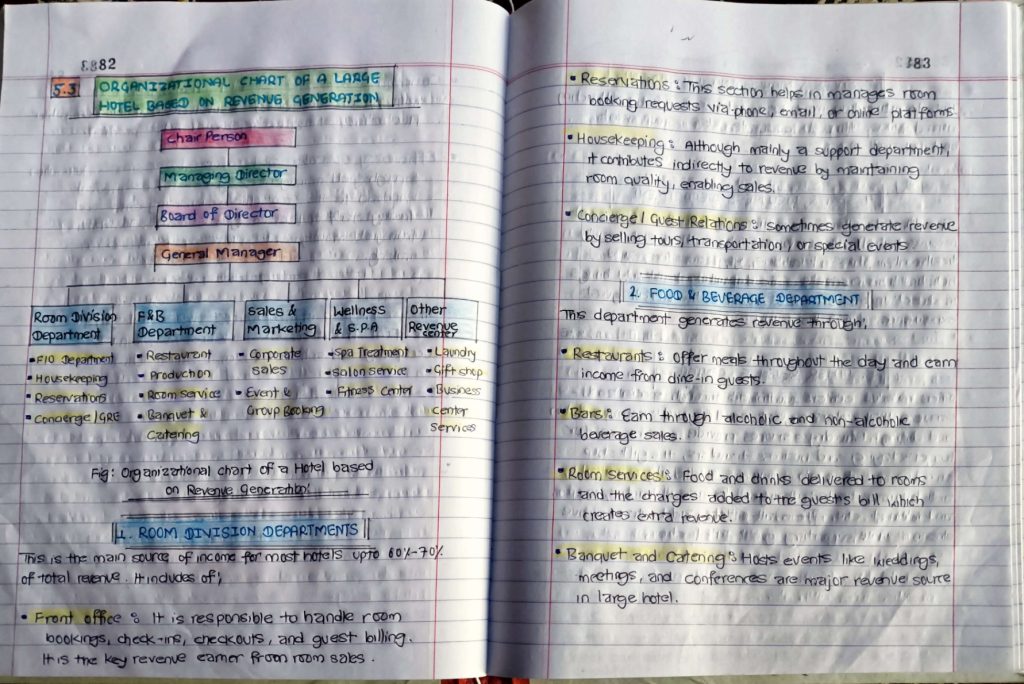 82
5.3 ORGANIZATIONAL CHART OF A LARGE
HOTEL BASED ON REVENUE GENERATION
Chair Person
Managing Director
Board of Director
General Manager
Room Division
Department
• F/O Department
• Housekeeping
• Reservations
• Concierge/GRE
F&B
Department
• Restaurant
• Production
• Room service
• Banquet &
Catering
Sales &
Marketing
• Corporate
sales
• Event &
Group Booking
Wellness
& S.P.A
• Spa Treatment
• Salon service
• Fitness Center
Other
Revenue
center
• Laundry
• Gift shop
• Business
center
services
Fig: Organizational chart of a Hotel based
on Revenue Generation.
1. ROOM DIVISION DEPARTMENTS
This is the main source of income for most hotels upto 60%-70%
of total revenue. It includes of;
• Front office : It is responsible to handle room
bookings, check-ins, checkouts, and guest billing.
It is the key revenue earner from room sales.
83
• Reservations : This section helps in manages room
booking requests via phone, email, or online platforms
• Housekeeping : Although mainly a support department,
it contributes indirectly to revenue by maintaining
room quality, enabling sales.
• Concierge/Guest Relations : sometimes generate revenue
by selling tours, transportation, or special events
2. FOOD & BEVERAGE DEPARTMENT
This department generates revenue through;
• Restaurants : Offer meals throughout the day and earn
income from dine-in guests.
• Bars : Earn through alcoholic and non-alcoholic
beverage sales.
• Room services : Food and drinks delivered to rooms
and the charges added to the guest's bill which
creates extra revenue.
• Banquet and Catering : Hosts events like weddings,
meetings, and conferences are major revenue source
in large hotel.